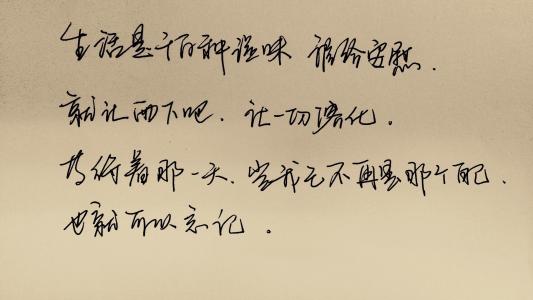 生活是千百种滋味 给安慰.
就让雨下吧. 让一切溶化.
等待着那一天. 当我已不再是那个
也就可以忘记.